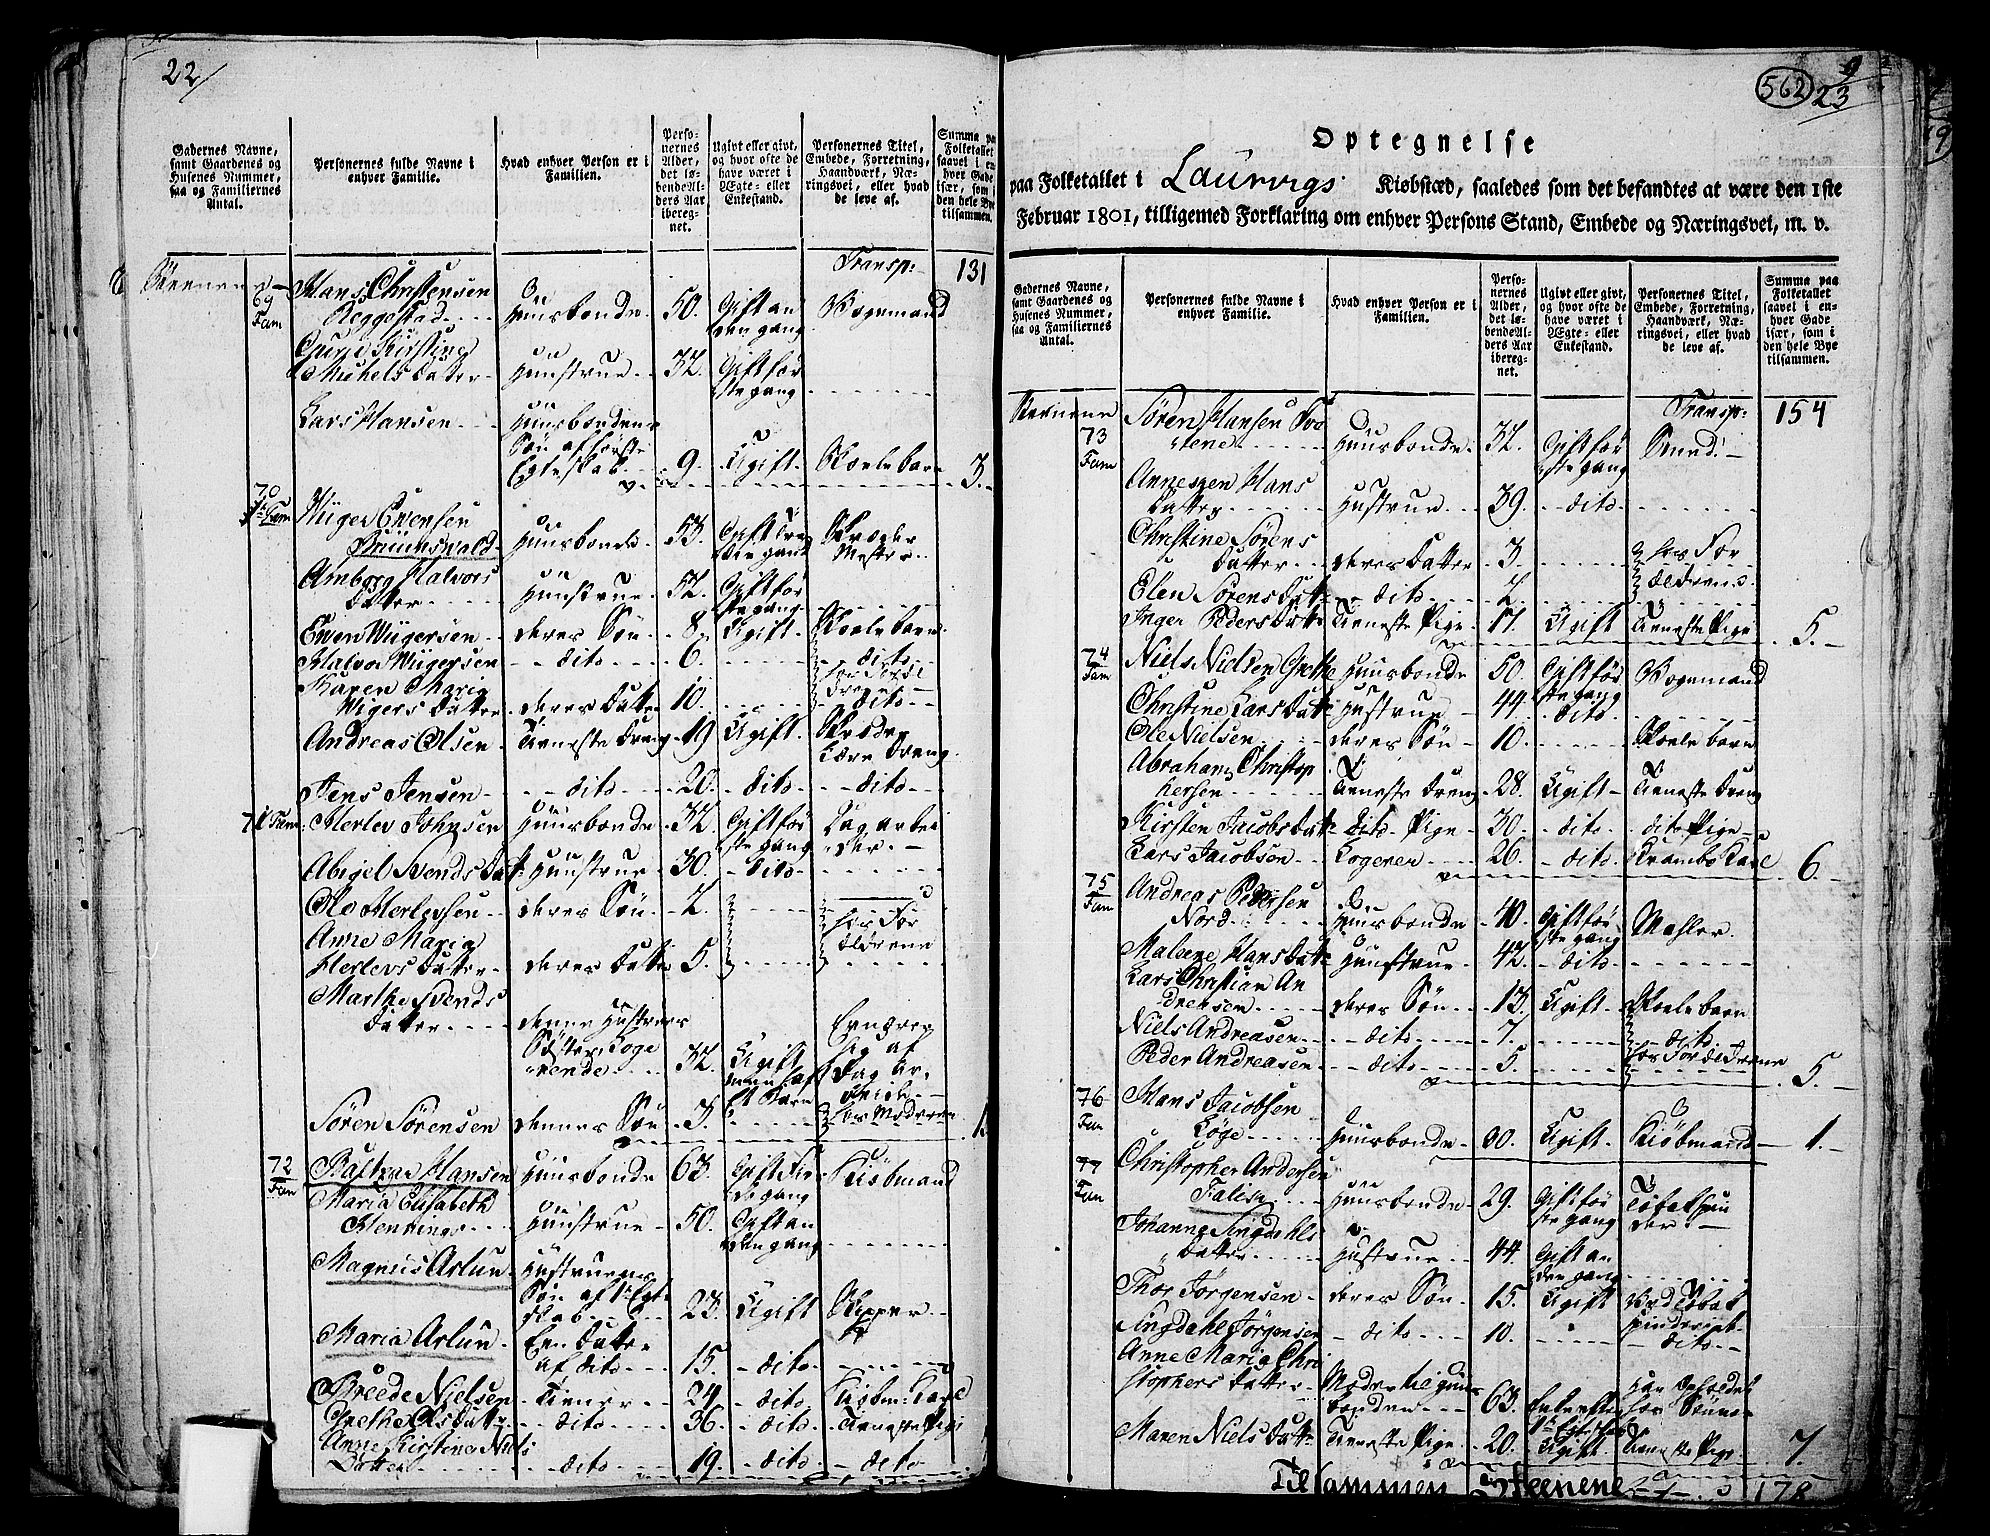 22
Gadernes Navne, samt Gaardenes og Husenes Nummer, saa og Familiernes Antal.
Personernes fulde Navne i enhver Familie.
Hvad enhver Person er i Familien.
Personernes Alder, det løbende Alders Aar iberegnet.
Ugivt eller givt, og hvor ofte de have været i Ægte- eller Enkestand.
Personernes Titel, Embede, Forretning, Haandværk, Næringsvei, eller hvad de leve af.
Summa paa Folketallet saavel i enhver Gade især, som i den hele Bye tilsammen.
Transp: 131
Steenene
69 Fam Hans Christensen Huusbonde 50. Gift anden gang
Michels datter Hunstrue 32. Gift første gang
Lars Hansen Huusbondens Søn af første Egteskab 9. Ugift Skolebarn 3.
70 Fam Wiiger Ewensen Huusbonde 53.
Amborg Halvors datter Hunstrue 52. Gift første gang
Ewen Wiigersen deres Søn 8. Ugift Skolebarn
Halvor Wiigersen dito 6. dito
Karen Maria Wigers datter deres datter 10. dito
Andreas Olsen Tieneste dreng 19 Ugift
Jens Jensen dito 20. dito dito
71 Fam Herlev Johnsen Huusbonde 32. Gift første gang Dagarbeider
Abigel Svends dat Hunstrue 30. dito
Ole Herlevsen deres Søn 2. hos Forældrene
Anne Maria Herlevs datter deres datter 5.
Marthe Svends datter denne Hustrues Søster, Logerende 32. Ugift
Søren Sørensen dennes Søn 3. hos Moderen
72 Fam Baltzar Hansen Huusbonde 63. Kiøbmand
Maria Elisabeth Hennings Hunstrue 50. Gift anden gang
Magnus Arlun Hustruens Søn af 1te Egteskab 23. Ugift Skipper
Maria Arlun En datter af dito 15. dito
Breede Nielsen Tiener 24. dito Kiøbm: Karl
Grethe Ols datter dito 36. dito Tieneste Pige
Anne Kirstine Niels datter dito 19. dito dito
562
23
Optegnelse
paa Folketallet i Laurvigs Kiøbstæd, saaledes som det befandtes at være den 1ste
Februar 1801, tilligemed Forklaring om enhver Persons Stand, Embede og Næringsvei, m. v.
Gadernes Navne, samt Gaardenes og Husenes Nummer, saa og Familiernes Antal.
Personernes fulde Navne i enhver Familie.
Hvad enhver Person er i Familien.
Personernes Alder, det løbende Alders Aar iberegnet.
Ugivt eller givt, og hvor ofte de have været i Ægte- eller Enkestand.
Personernes Titel, Embede, Forretning, Haandværk, Næringsvei, eller hvad de leve af.
Summa paa Folketallet saavel i enhver Gade især, som i den hele Bye tilsammen.
Transp: 154
Steenene
73 Fam Søren Hansen Huusbonde 32. Gift første gang Smed
Hans datter Hustrue 39. dito
Christine Sørens datter deres datter 3. hos Forældrene
Elen Sørensdat dito 2.
Inger Pedersdat Tieneste Pige 17. Ugift Tieneste Pige 5.
74 Fam Niels Nielsen Huusbonde 50. Gift første gang
Christine Larsdat Hustrue 44. dito
Ole Nielsen deres Søn 10. Skolebarn
Abraham Christophersen Tieneste dreng 28. Ugift Tieneste dreng
Kirsten Jacobsdat dito Pige 30. dito dito Pige
Lars Jacobsen Logerer 26. dito Kramboe Karl 6.
75 Fam Andreas Pedersen Nord Huusbonde 40. Gift første gang Mahler
Malene Hansdat Hunstrue 42. dito
Lars Christian Andreasen deres Søn 13. Ugift Skolebarn
Niels Andreasen dito 7. dito
Peder Andreasen dito 5. hos Forældrene 5.
76 Fam Hans Jacobsen Løge Huusbonde 30. Ugift Kiøbmand 1.
77 Fam Christopher Andersen Falisen Huusbonde 29. Gift første gang Tobakspinder
Johanne Singdahls datter Hustrue 44. Gift anden gang
Thor Jørgensen deres Søn 15. Ugift
Singdahl Jørgensen dito 10. dito
Anne Maria Christophers datter Moder til Huusbonden 63.
Maren Nielsdat Tieneste Pige 20. Ugift Tieneste Pige 7.
Tilsammen Steenene 178